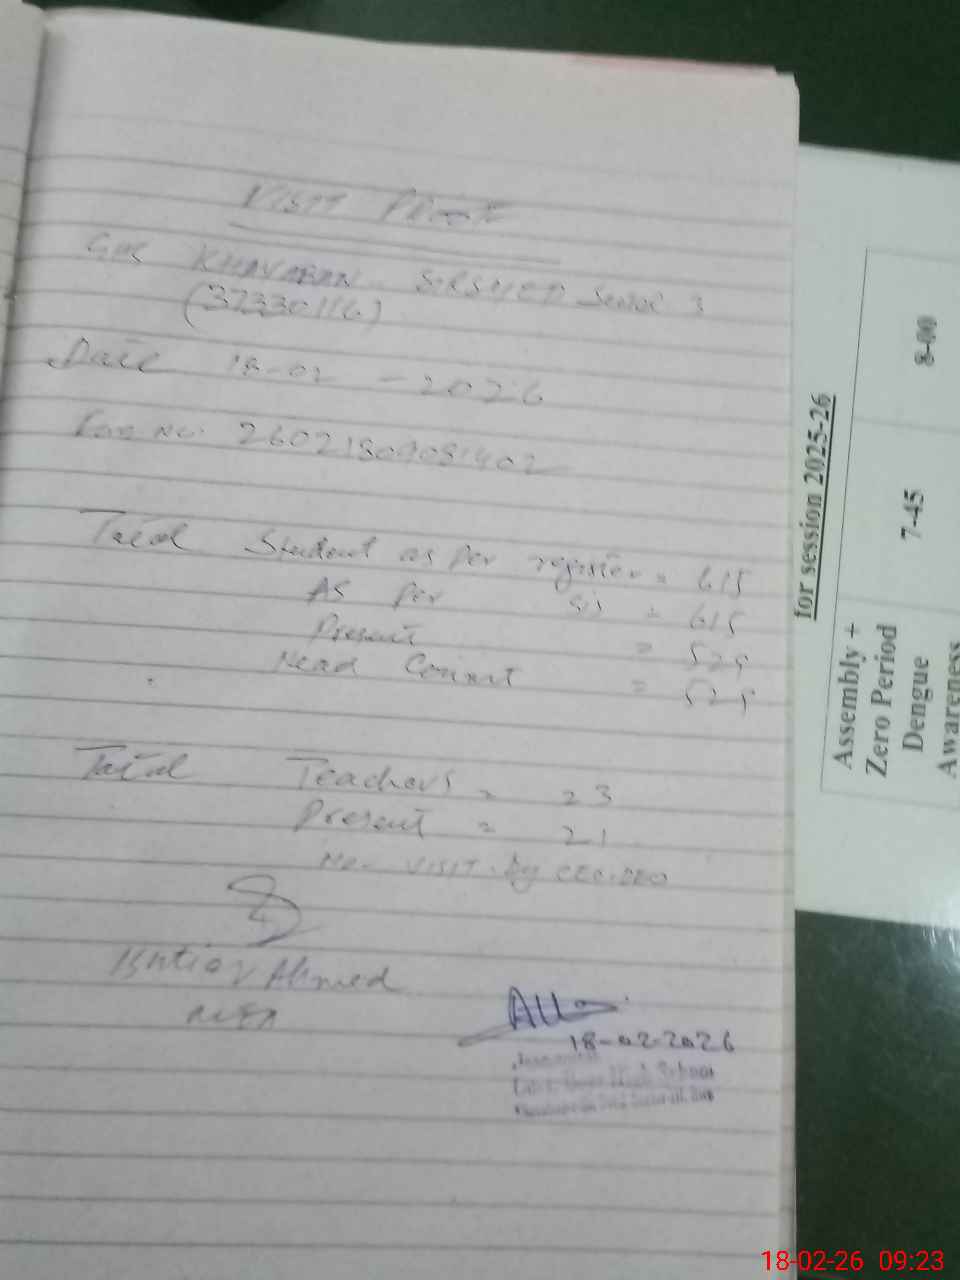 VISIT Proof
KHAYABAN SIRSYED Sector 3
(37330116)
Date 18-02-2026
No. 26021809081402
Total Student as per register = 615
As Per sis = 615
Present = 525
Head Count = 525
Total Teachers = 23
Present = 21
No- VISIT by CEO.DEO
Ahmed
MEA
18-02-2026
High School
for session 2025-26
Assembly +
Zero Period
Dengue
Awareness
7-45
8-00
18-02-26 09:23